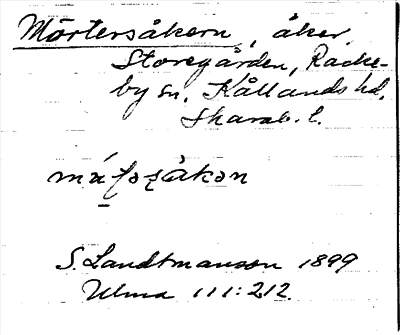 Mörtersåkern, åker,
Storegården, Racke-
by sn. Kållands hd.
Skarab. l.
S. Landtmanson 1899
Ulma 111:212.